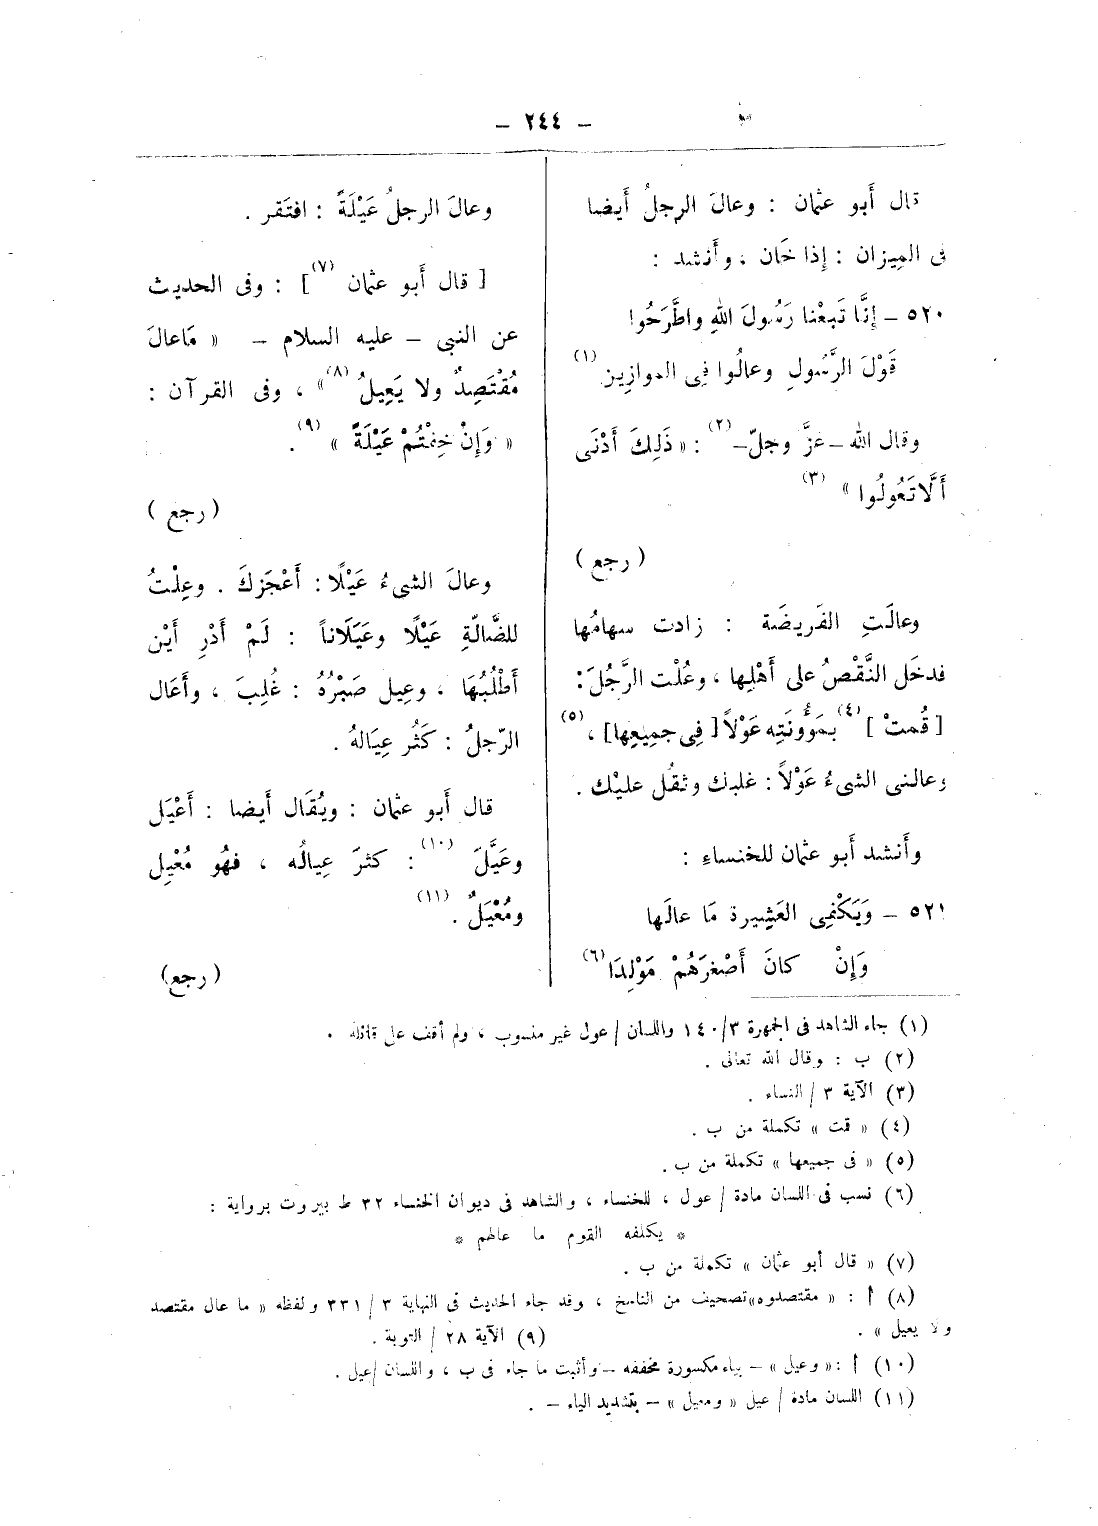 – ٢٤٤ –
قال أَبو عثمان : وعالَ الرجلُ أَيضا
فى المِيزان : إِذا خَان ، وأَنشد :
٥٢٠ – إِنَّا تَبِعْنا رَسُولَ اللهِ واطَّرَحُوا
قَوْلَ الرَّسُولِ وعالُوا فِى الموازِينِ (١)
وقال الله – عزَّ وجلّ – (٢) : « ذَلِكَ أَدْنَى
أَلَّا تَعُولُوا » (٣)
( رجع )
وعالَتِ الفَريضَة : زادت سهامُها
فدخَل النَّقْصُ على أَهْلِها ، وعُلْت الرَّجُلَ :
[ قُمتْ ] (٤) بمَؤُونَتِه عَوْلاً [ فِى جمِيعِها ] (٥) ،
وعالنى الشىءُ عَوْلاً : غلبك وثقُل عليْك .
وأَنشد أَبو عثمان للخنساءِ :
٥٢١ – وَيَكْفِى العَشِيرة مَا عالَها
وَإِنْ كانَ أَصْغرَهُمْ مَوْلِدَا (٦)
وعالَ الرجلُ عَيْلَةً : افتَقر .
[ قال أَبو عثمان (٧) ] : وفى الحديث
عن النبى – عليه السلام – « مَا عالَ
مُقْتَصِدٌ ولا يَعِيلُ (٨) » ، وفى القرآن :
« وَإِنْ خِفْتُمْ عَيْلَةً » (٩) .
( رجع )
وعالَ الشىءُ عَيْلًا : أَعْجَزكَ . وعِلْتُ
للضَّالّةِ عَيْلًا وعَيَلَاناً : لَمْ أَدْرِ أَيْن
أَطْلُبُهَا ، وعِيل صَبْرُهُ : غُلِبَ ، وأَعَال
الرّجلُ : كَثُر عِيَالهُ .
قال أَبو عثمان : ويُقَال أَيضا : أَعْيَل
وعَيَّلَ (١٠) : كثرَ عِيالُه ، فهُو مُعْيِل
ومُعْيَلٌ (١١) .
( رجع )
(١) جاء الشاهد فى الجمهرة ٣/ ١٤٠ واللسان / عول غير منسوب ، ولم أقف على قائله .
(٢) ب : وقال الله تعالى .
(٣) الآية ٣ / النساء .
(٤) « قمت » تكملة من ب .
(٥) « فى جميعها » تكملة من ب .
(٦) نسب فى اللسان مادة / عول ، للخنساء ، والشاهد فى ديوان الخنساء ٣٢ ط بيروت برواية :
* يكلفه القوم ما عالهم *
(٧) « قال أبو عثمان » تكملة من ب .
(٨) أ : « مقتصدوه » تصحيف من الناسخ ، وقد جاء الحديث فى النهاية ٣ / ٣٣١ ولفظه « ما عال مقتصد
ولا يعيل » . (٩) الآية ٢٨ / التوبة .
(١٠) أ : « وعيل » – بياء مكسورة مخففه – وأثبت ما جاء فى ب ، واللسان / عيل .
(١١) اللسان مادة / عيل « ومعيل » – بتشديد الياء – .